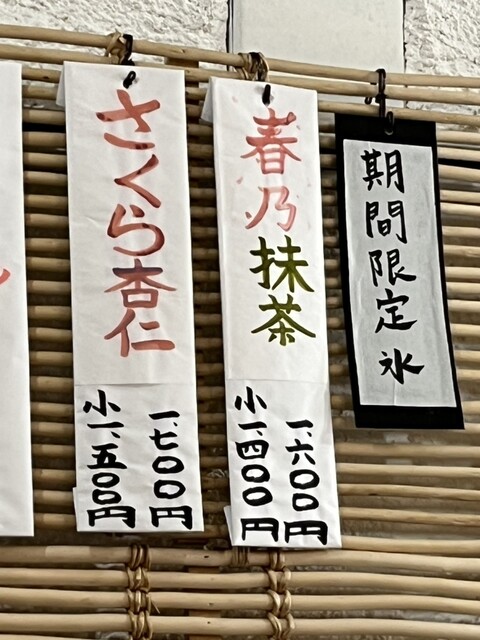 期間限定氷
春乃抹茶
一、六〇〇円
小一、四〇〇円
さくら杏仁
一、七〇〇円
小一、五〇〇円